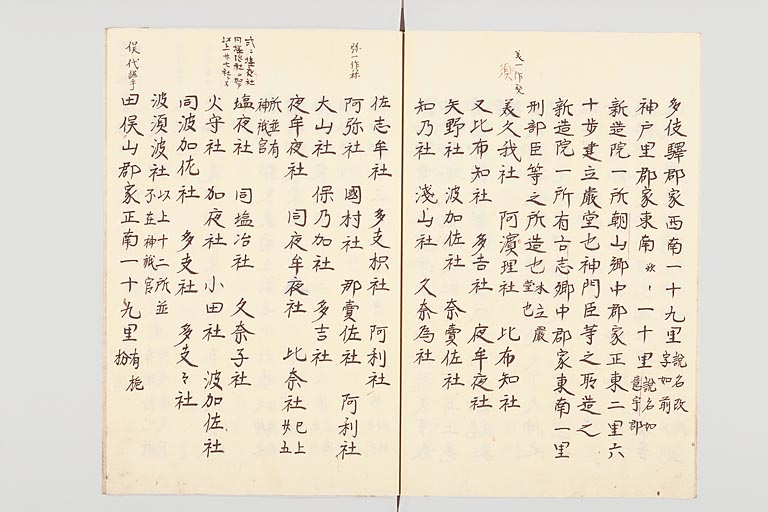 多伎驛郡家西南一十九里說名改字如前
神戸里郡家東南一十里說名如意宇郡
新造院一所朝山郷中郡家正東二里六
十步建立嚴堂也神門臣等之所造之
新造院一所有古志郷中郡家東南一里
刑部臣等之所造也本立嚴堂也
美久我社 阿濱理社 比布知社
又比布知社 多吉社 夜牟夜社
矢野社 波加佐社 奈賣佐社
知乃社 淺山社 久奈為社
佐志牟社 多支枳社 阿利社
阿弥社 國村社 那賣佐社 阿利社
大山社 保乃加社 多吉社
夜牟夜社 同夜牟夜社 比奈社已上廿五
所並有神祇官
塩夜社 同塩冶社 久奈子社
火守社 加夜社 小田社 波加佐社
同波加佐社 多支社 多支々社
波須波社以上十二所並不在神祇官
田俣山郡家正南一十九里有柂枌